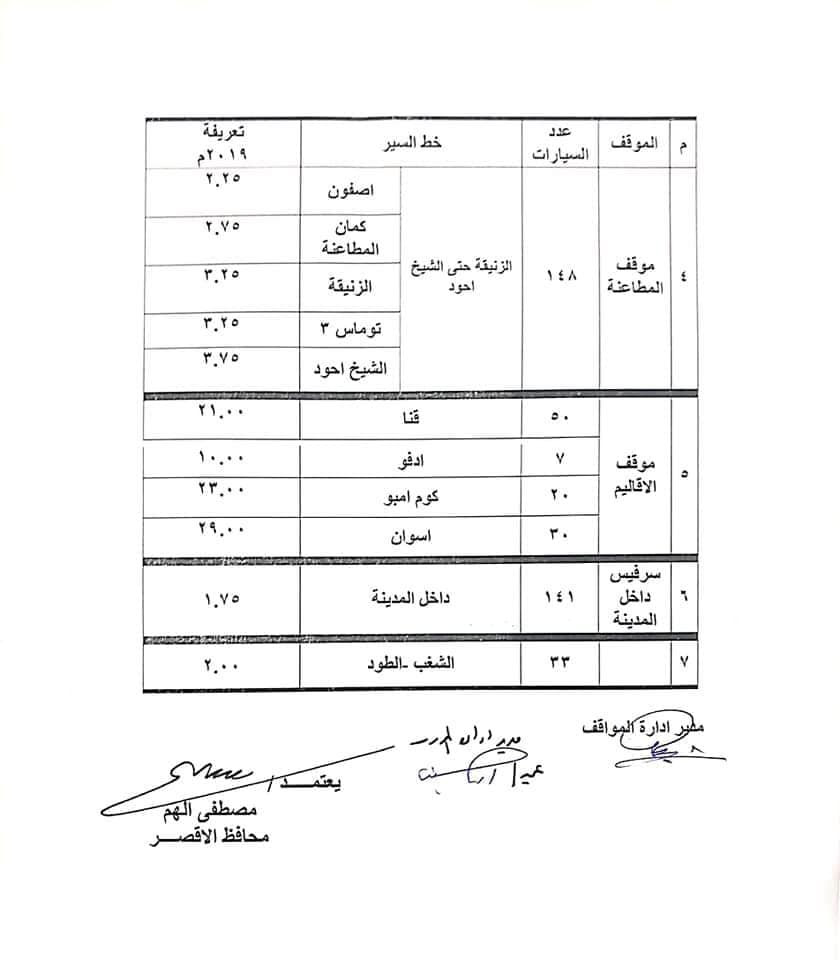 م الموقف عدد السيارات خط السير تعريفة ٢٠١٩م
٤ موقف المطاعنة ١٤٨ الزنيقة حتى الشيخ احود
اصفون ٢.٢٥
كمان المطاعنة ٢.٧٥
الزنيقة ٣.٢٥
توماس ٣ ٣.٢٥
الشيخ احود ٣.٧٥
٥ موقف الاقاليم
٥٠ قنا ٢١.٠٠
٧ ادفو ١٠.٠٠
٢٠ كوم امبو ٢٣.٠٠
٣٠ اسوان ٢٩.٠٠
٦ سرفيس داخل المدينة ١٤١ داخل المدينة ١.٧٥
٧ ٣٣ الشغب -الطود ٢.٠٠
مدير ادارة المواقف
مدير
عميد
يعتمد/
مصطفى الهم
محافظ الاقصر